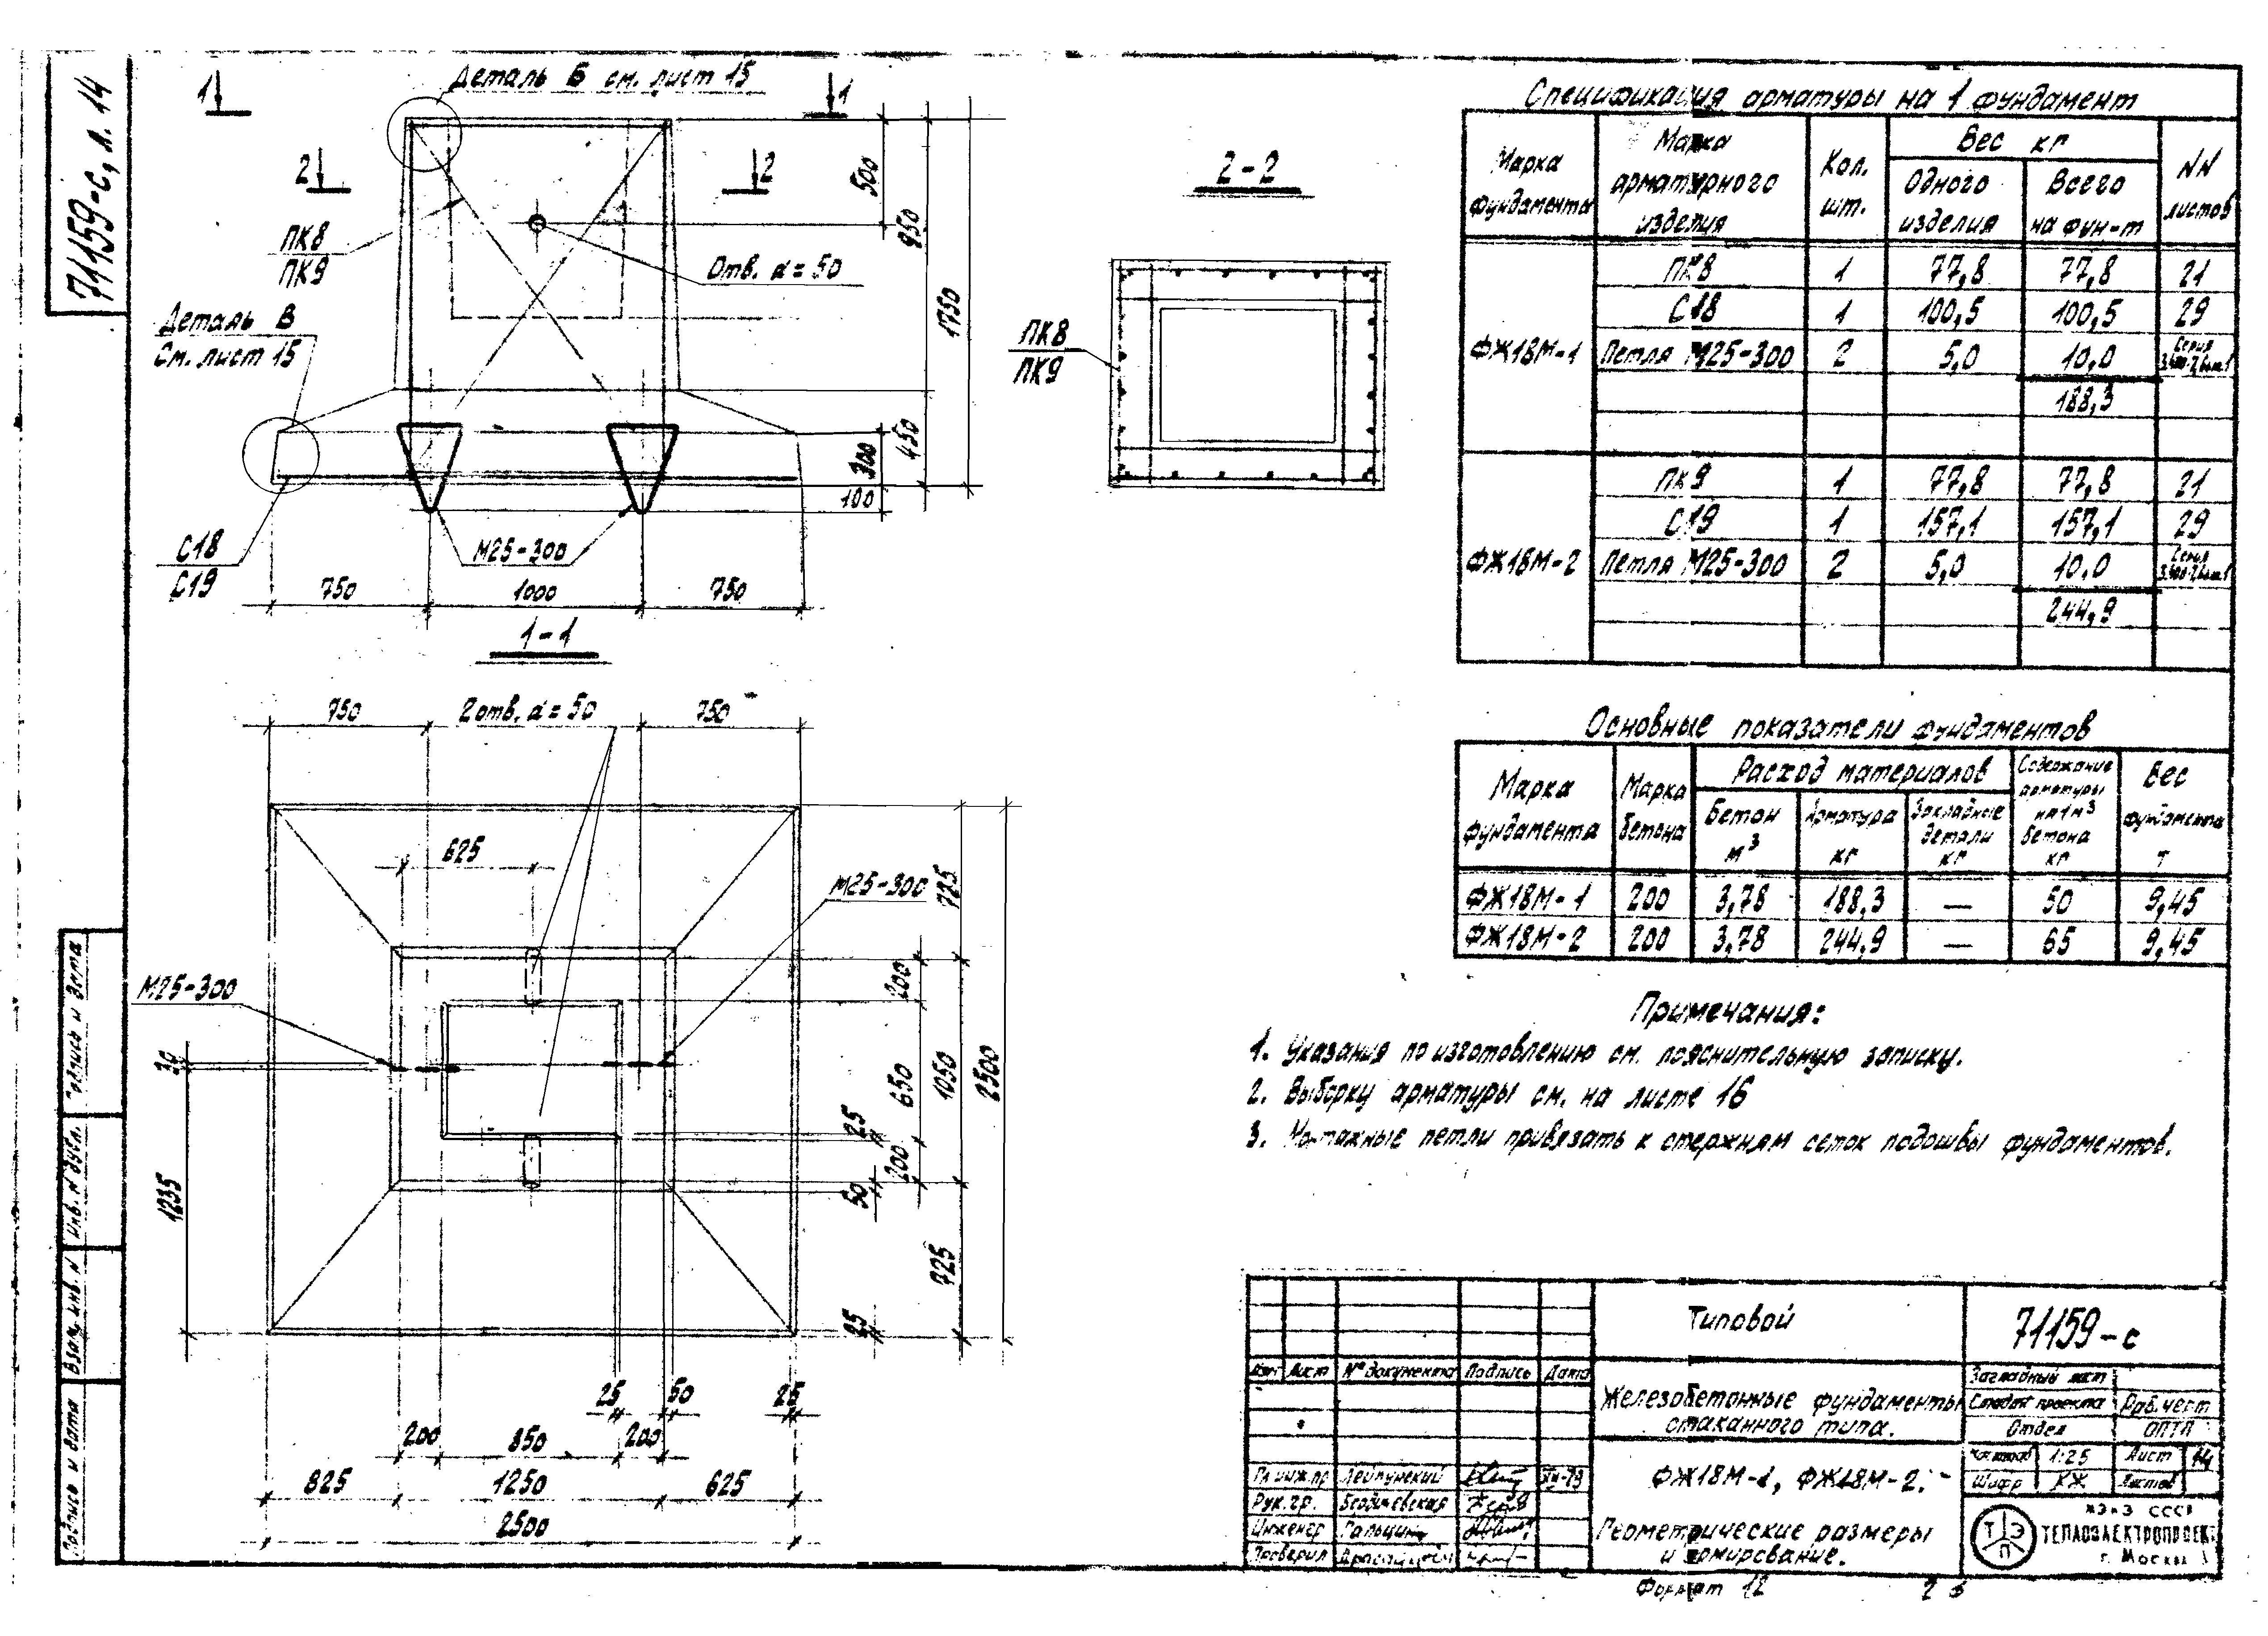 71159-с, л. 14
Деталь Б см. лист 15
1
1
2
2
ПК8
ПК9
Отв. d=50
Деталь В
См. лист 15
С18
С19
М25-300
500
950
1750
450
300
100
750
1000
750
1-1
750
2 отв. d=50
750
625
М25-300
М25-300
30
1235
725
200
650
1050
2500
25
200
50
725
25
25
50
25
200
850
200
825
1250
625
2500
2-2
ПК8
ПК9
Спецификация арматуры на 1 фундамент
Марка фундамента
Марка арматурного изделия
Кол. шт.
Вес кг
Одного изделия
Всего на фун-т
NN листов
ФЖ18М-1
ПК8 1 77,8 77,8 21
С18 1 100,5 100,5 29
Петля М25-300 2 5,0 10,0 Серия
188,3
ФЖ18М-2
ПК9 1 77,8 77,8 21
С19 1 157,1 157,1 29
Петля М25-300 2 5,0 10,0 Серия
244,9
Основные показатели фундаментов
Марка фундамента
Марка бетона
Расход материалов
Бетон м³
Арматура кг
Закладные детали кг
Содержание арматуры на 1м³ бетона кг
Вес фундамента т
ФЖ18М-1 200 3,78 188,3 — 50 9,45
ФЖ18М-2 200 3,78 244,9 — 65 9,45
Примечания:
1. Указания по изготовлению см. пояснительную записку.
2. Выборку арматуры см. на листе 16
3. Монтажные петли привязать к стержням сеток подошвы фундаментов.
Подпись и дата
Инв. N дубл.
Взам. инв. N
Подпись и дата
Изм Лист № документа Подпись Дата
Гл. инж. пр
Рук. гр.
Инженер
Проверил
Типовой
71159-с
Железобетонные фундаменты
стаканного типа.
ФЖ18М-1, ФЖ18М-2.
Геометрические размеры
и армирование.
Заглавный лист
Стадия проекта Раб. черт
Отдел ОПТП
1:25 Лист 14
Шифр КЖ Листов
ТЭП
МЭиЭ СССР
ТЕПЛОЭЛЕКТРОПРОЕКТ
г. Москва
Формат 12